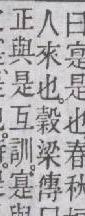 曰寔是也春秋
人來也。穀梁傳
正與是互訓。寔與